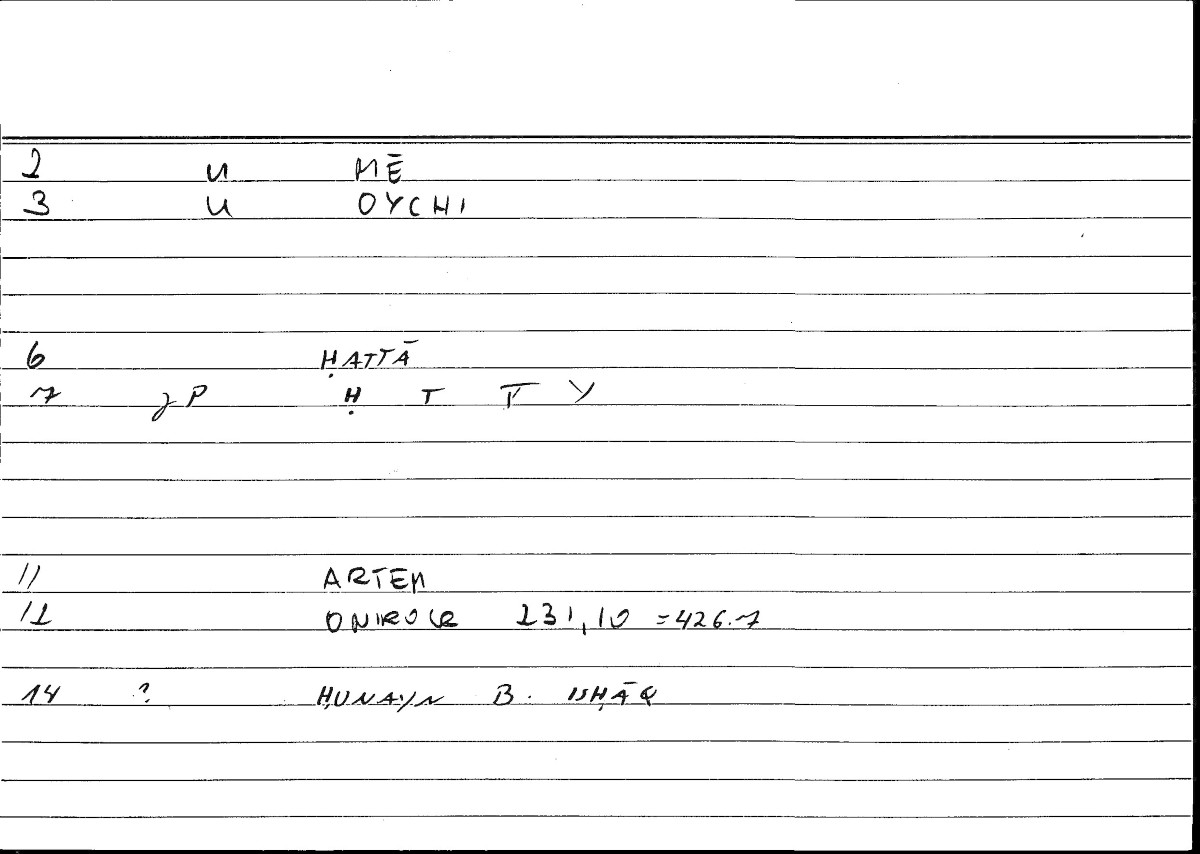 2 u MĒ
3 u OYCHI
6 ḤATTĀ
7 jP Ḥ T T Y
11 ARTEM
12 ONIROCR 231,10 =426.7
14 ? ḤUNAYN B. ISḤĀQ